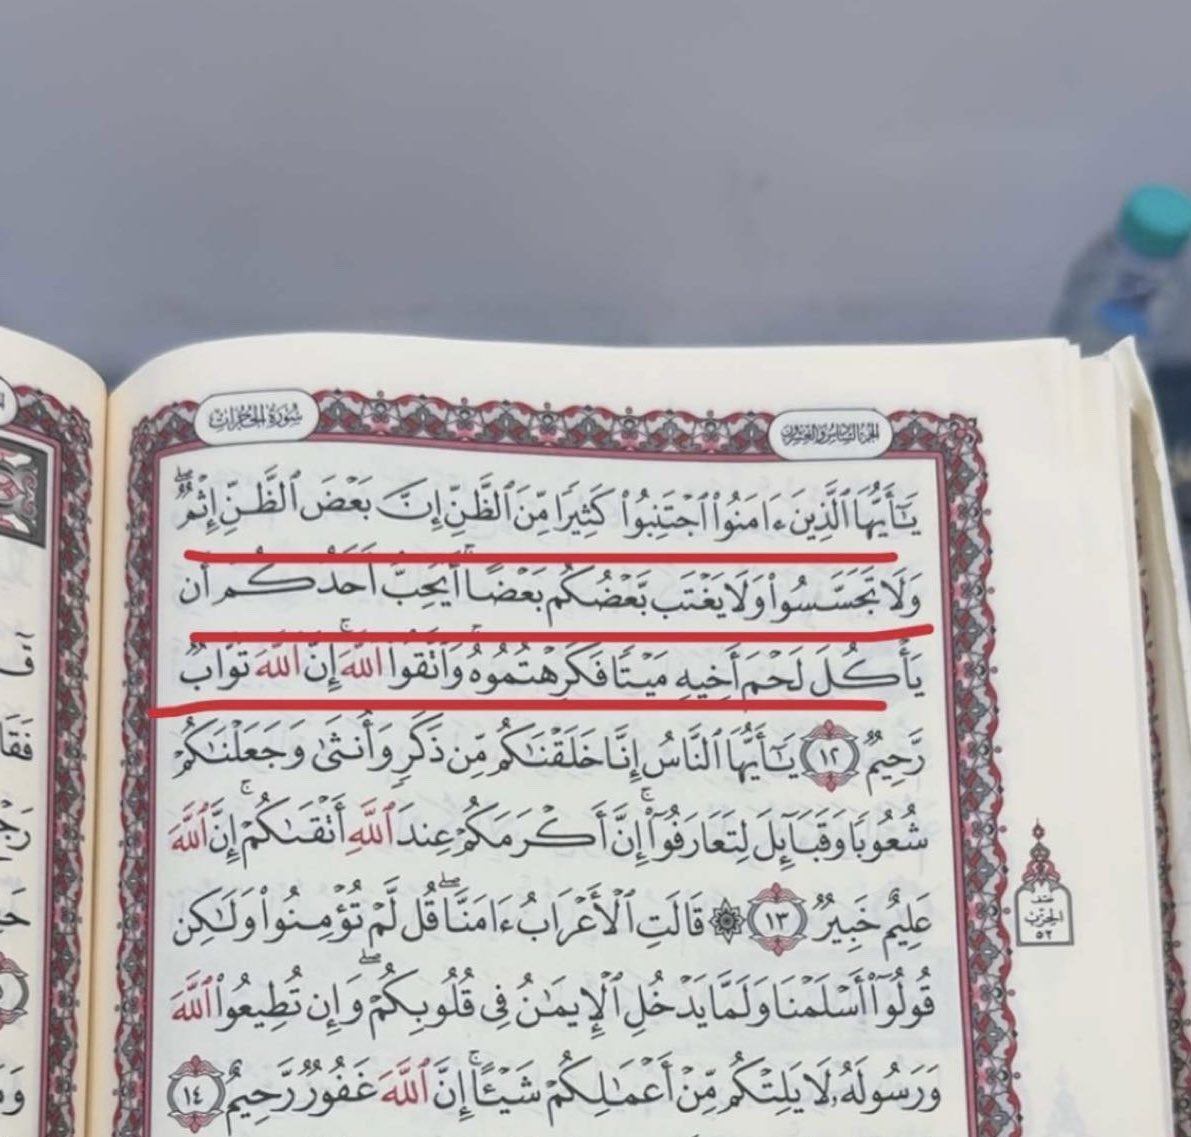 الجزء السادس والعشرون
سورة الحجرات
يَٰٓأَيُّهَا ٱلَّذِينَ ءَامَنُوا۟ ٱجْتَنِبُوا۟ كَثِيرًا مِّنَ ٱلظَّنِّ إِنَّ بَعْضَ ٱلظَّنِّ إِثْمٌ ۖ
وَلَا تَجَسَّسُوا۟ وَلَا يَغْتَب بَّعْضُكُم بَعْضًا ۚ أَيُحِبُّ أَحَدُكُمْ أَن
يَأْكُلَ لَحْمَ أَخِيهِ مَيْتًا فَكَرِهْتُمُوهُ ۚ وَٱتَّقُوا۟ ٱللَّهَ ۚ إِنَّ ٱللَّهَ تَوَّابٌ
رَّحِيمٌ ١٢ يَٰٓأَيُّهَا ٱلنَّاسُ إِنَّا خَلَقْنَٰكُم مِّن ذَكَرٍ وَأُنثَىٰ وَجَعَلْنَٰكُمْ
شُعُوبًا وَقَبَآئِلَ لِتَعَارَفُوٓا۟ ۚ إِنَّ أَكْرَمَكُمْ عِندَ ٱللَّهِ أَتْقَىٰكُمْ ۚ إِنَّ ٱللَّهَ
عَلِيمٌ خَبِيرٌ ١٣ ۞ قَالَتِ ٱلْأَعْرَابُ ءَامَنَّا ۖ قُل لَّمْ تُؤْمِنُوا۟ وَلَٰكِن
قُولُوٓا۟ أَسْلَمْنَا وَلَمَّا يَدْخُلِ ٱلْإِيمَٰنُ فِى قُلُوبِكُمْ ۖ وَإِن تُطِيعُوا۟ ٱللَّهَ
وَرَسُولَهُۥ لَا يَلِتْكُم مِّنْ أَعْمَٰلِكُمْ شَيْـًٔا ۚ إِنَّ ٱللَّهَ غَفُورٌ رَّحِيمٌ ١٤
نصف
الحزب
٥٢